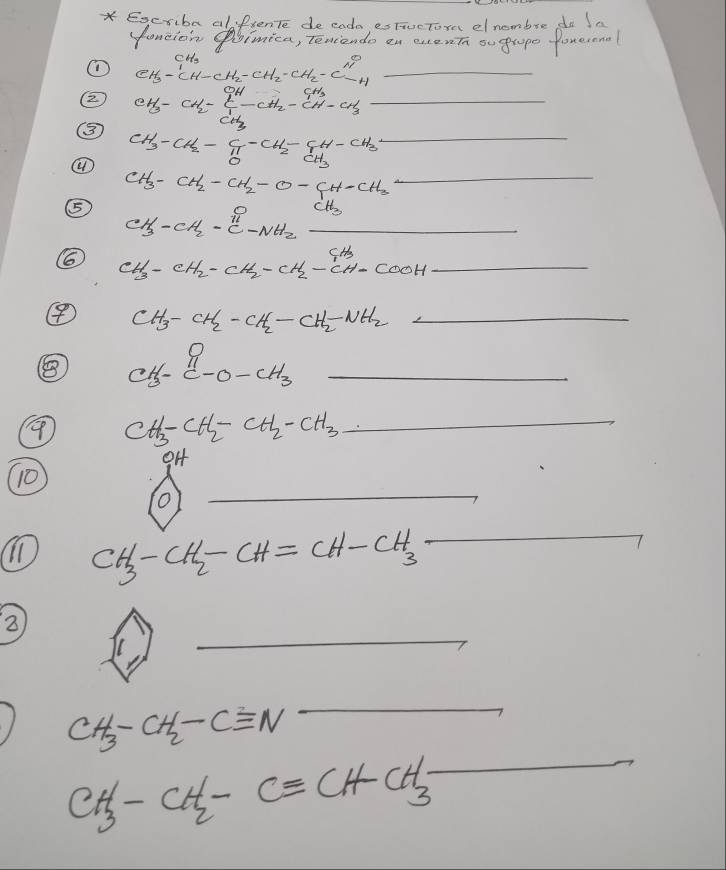 * Escriba al frente de cada estructura el nombre de la
función química, Teniendo en cuenta su grupo funcional
CH3 O
① CH3-CH-CH2-CH2-CH2-C-H
OH CH3
② CH3-CH2-C-CH2-CH-CH3
CH3
③ CH3-CH2-C-CH2-CH-CH3
O CH3
④ CH3-CH2-CH2-O-CH-CH3
CH3
O
⑤ CH3-CH2-C-NH2
CH3
⑥ CH3-CH2-CH2-CH2-CH-COOH
⑦ CH3-CH2-CH2-CH2-NH2
O
⑧ CH3-C-O-CH3
⑨ CH3-CH2-CH2-CH3
OH
⑩
⑪ CH3-CH2-CH=CH-CH3
2
CH3-CH2-C≡N
CH3-CH2-C≡CH-CH3